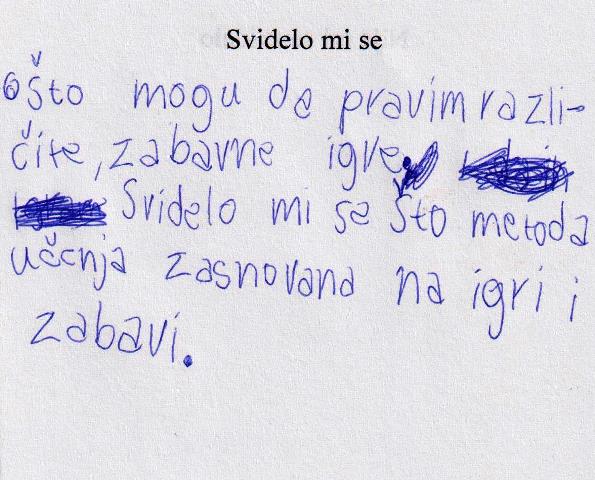 Svidelo mi se
Što mogu da pravim razli-
čite, zabavne igre.
Svidelo mi se što metoda
učenja zasnovana na igri i
zabavi.